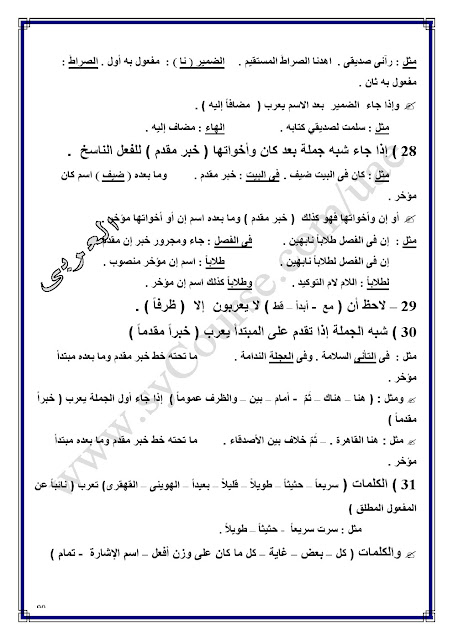 مثل : رآنى صديقى . اهدنا الصراط المستقيم . الضمير ( نا ) : مفعول به أول . الصراط :
مفعول به ثان .
وإذا جاء الضمير بعد الاسم يعرب ( مضافاً إليه ) .
مثل : سلمت لصديقي كتابه . الهاء : مضاف إليه .
28 ) إذا جاء شبه جملة بعد كان وأخواتها ( خبر مقدم ) للفعل الناسخ .
مثل : كان فى البيت ضيف . فى البيت : خبر مقدم . وما بعده ( ضيف ) اسم كان
مؤخر .
أو إن وأخواتها فهو كذلك ( خبر مقدم ) وما بعده اسم إن أو أخواتها مؤخر .
مثل : إن فى الفصل طلاباً نابهين . فى الفصل : جاء ومجرور خبر إن مقدم
إن فى الفصل لطلاباً نابهين . طلاباً : اسم إن مؤخر منصوب .
لطلاباً : اللام لام التوكيد . وطلاباً كذلك اسم إن مؤخر .
29 – لاحظ أن ( مع - أبداً – قط ) لا يعربون إلا ( ظرفاً ) .
30 ) شبه الجملة إذا تقدم على المبتدأ يعرب ( خبراً مقدماً )
مثل : فى التأنى السلامة . وفى العجلة الندامة . ما تحته خط خبر مقدم وما بعده مبتدأ
مؤخر .
ومثل : ( هنا – هناك – ثمّ - أمام – بين – والظرف عموماً ) إذا جاء أول الجملة يعرب ( خبراً
مقدماً )
مثل : هنا القاهرة . – ثمّ خلاف بين الأصدقاء . ما تحته خط خبر مقدم وما بعده مبتدأ
مؤخر .
31 ) الكلمات ( سريعاً – حثيثاً – طويلاً – قليلاً – بعيداً – الهوينى – القهقرى) تعرب ( نائباً عن
المفعول المطلق )
مثل : سرت سريعاً - حثيثاً – طويلاً .
والكلمات ( كل – بعض – غاية – كل ما كان على وزن أفعل – اسم الإشارة - تمام )
www.syCourse.com/uae